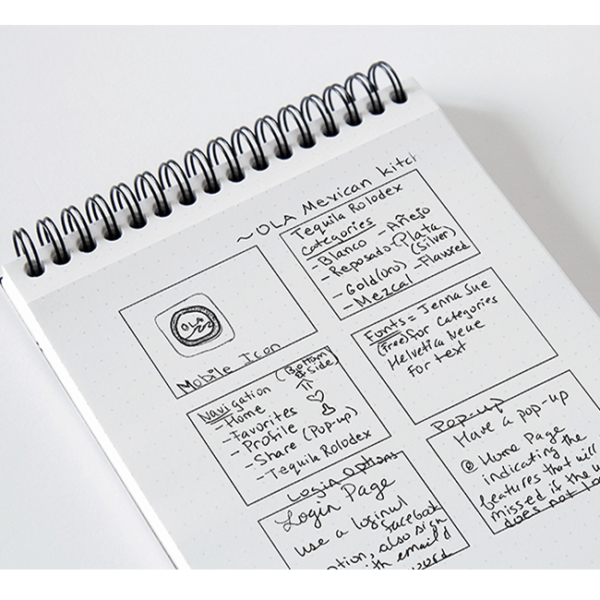 ~OLA Mexican kitc
OLA
Mobile Icon
Tequila Rolodex
Categories
-Blanco -Añejo
-Reposado-Plata
(Silver)
-Gold(Oro) -Flavored
-Mezcal
Navigation (Bottom
& Side)
-Home
-Favorites
-Profile
-Share (Pop-up)
-Tequila Rolodex
Fonts = Jenna Sue
(free) for Categories
Helvetica Neue
for text
Login Options
Login Page
use a login w/
Facebook
option, also sign
with email &
Pop-up
Have a pop-up
@ Home Page
indicating the
features that will
missed if the u
does not lo